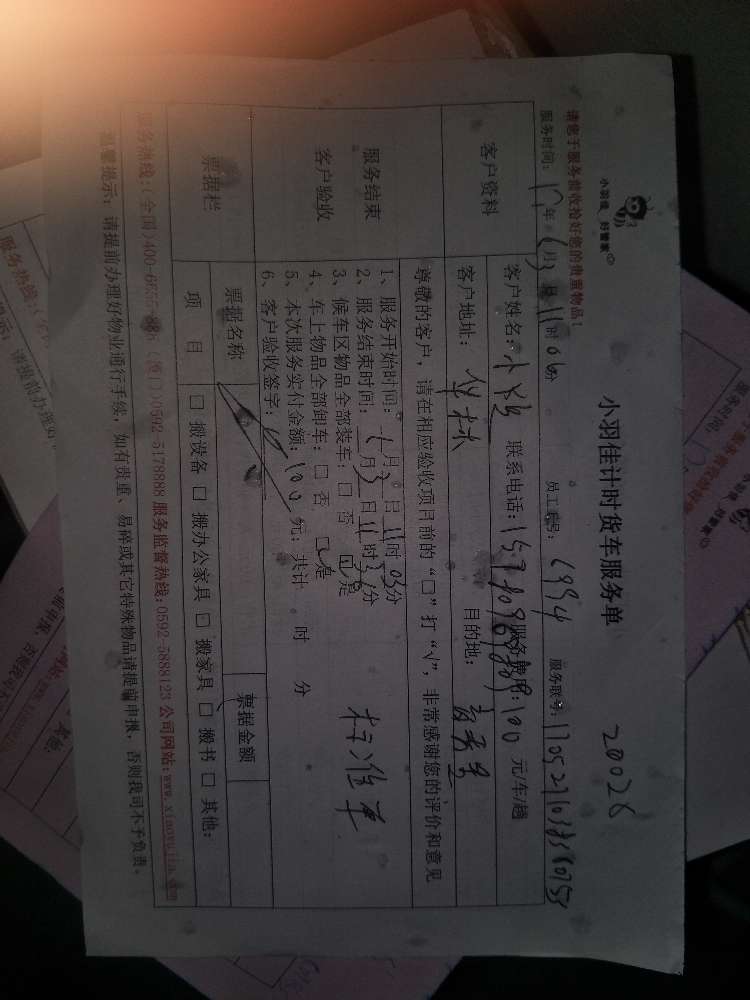 小羽佳 好管家
小羽佳计时货车服务单
20026
请您于服务前收拾好您的贵重物品!
服务时间: 17年 6月3日11时06分 员工工号: 6994 服务联号:
客户资料
客户姓名: 联系电话: 服务费用:100 元/车/趟
客户地址: 目的地:
尊敬的客户，请在相应验收项目前的“□”打“√”，非常感谢您的评价和意见
服务结束
客户验收
1、服务开始时间: 6月3日11时03分
2、服务结束时间: 6月3日11时36分
3、候车区物品全部装车:□ 否 ☑是
4、车上物品全部卸车:□ 否 ☑是
5、本次服务实付金额:100元;共计 时 分
6、客户验收签字:
标准车
票据栏
票据名称 票据金额
项 目 □ 搬设备 □ 搬办公家具 □ 搬家具 □ 搬书 □ 其他:
服务热线:(全国)400-6655-885 (厦门)0592-5178888 服务监督热线:0592-5888123 公司网站:www.xiaoyujia.com
温馨提示: 请提前办理好物业通行手续，如有贵重、易碎或其它特殊物品请提前申报，否则我司不予负责。